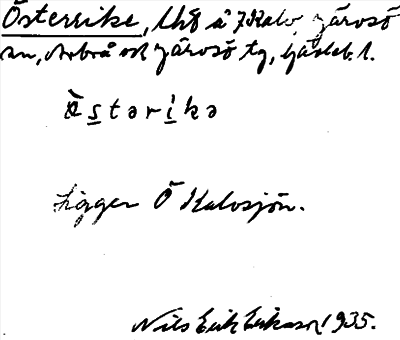 Österrike, lhg å 7 Kalv, Järvsö
sn, Arbrå och Järvsö tg, Gävleb. l.
östərikə
Ligger Ö Kalvsjön.
Nils Erik Eriksson 1935.